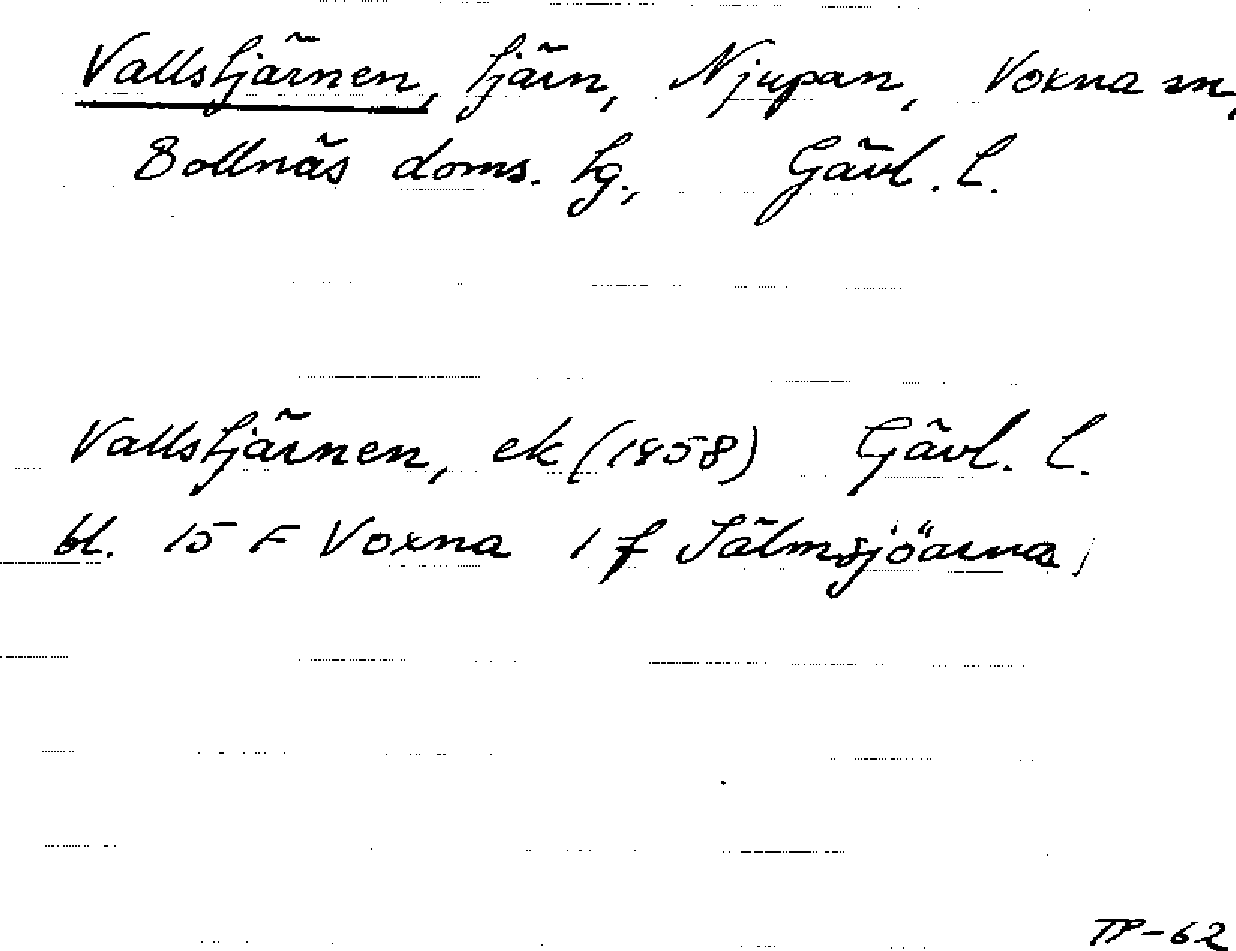 Vallstjärnen, tjärn, Njupan, Voxna sn,
Bollnäs doms. tg., Gävl. l.
Vallstjärnen, ek (1858) Gävl. l.
bl. 15 F Voxna 1 f Tälmsjöarna;
TP-62